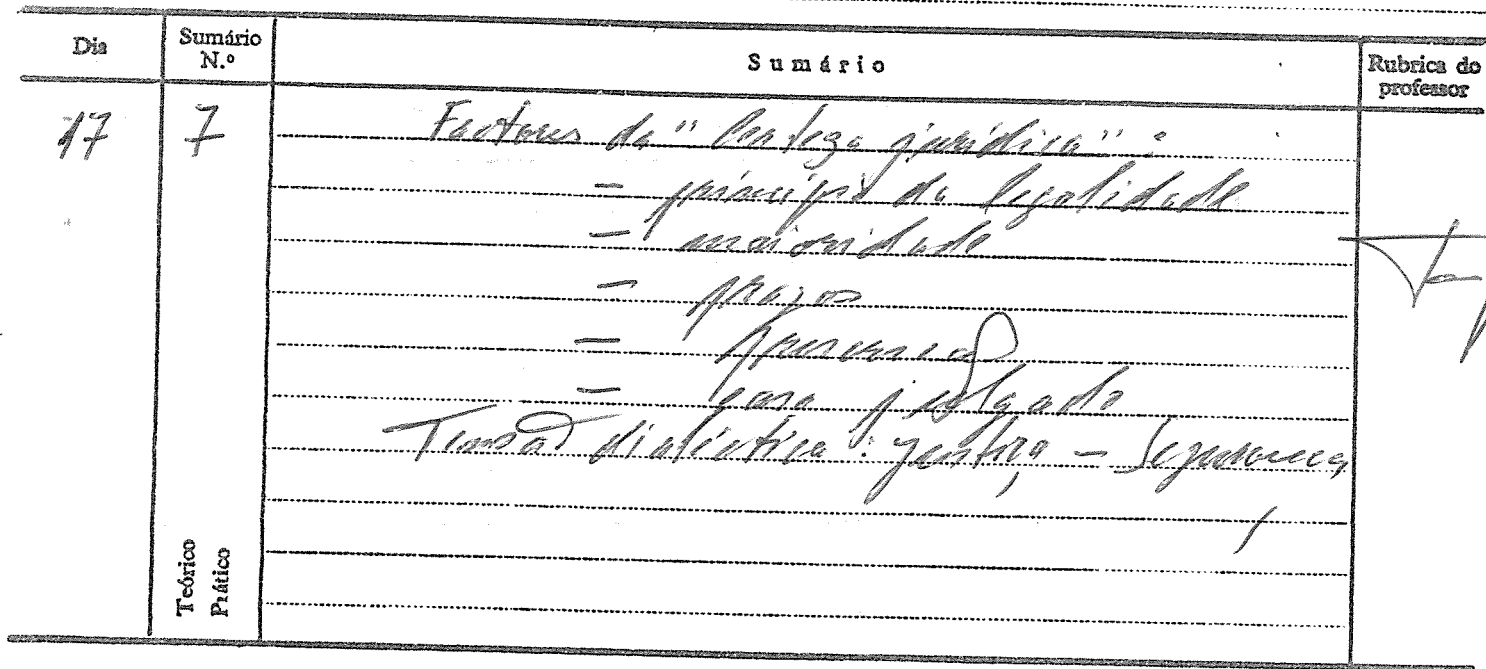 Dia Sumário N.º Sumário Rubrica do professor
17 7 Factores da "Certeza jurídica":
- princípio da legalidade
- maioridade
- prazos
-
- caso julgado
Tensão dialéctica: Justiça - Segurança
Teórico
Prático